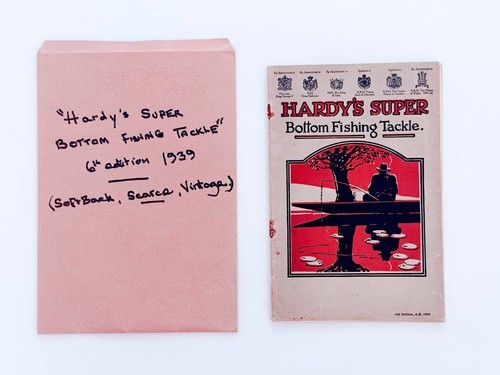 "Hardy's SUPER
BOTTOM FISHING TACKLE"
6th edition 1939
(SoftBack, Scarce, Vintage)
HARDY'S SUPER
Bottom Fishing Tackle.
6th Edition, A.E. 1939